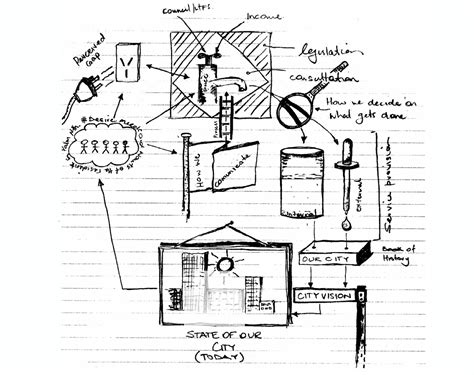 council/LTFS.
Income
Perceived
gap
legislation
consultation
How we decide on
what gets done
HOW WE
COMMUNICATE
internal
External
Service provision
OUR CITY
Book of
History
CITY VISION
STATE OF OUR
CITY
(TODAY)